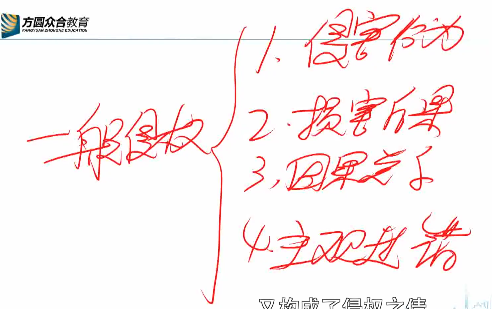 方圆众合教育
FANGYUAN ZHONGHE EDUCATION
一般侵权
1. 侵害行为
2. 损害后果
3, 因果关系
4. 主观过错
又构成了侵权之债